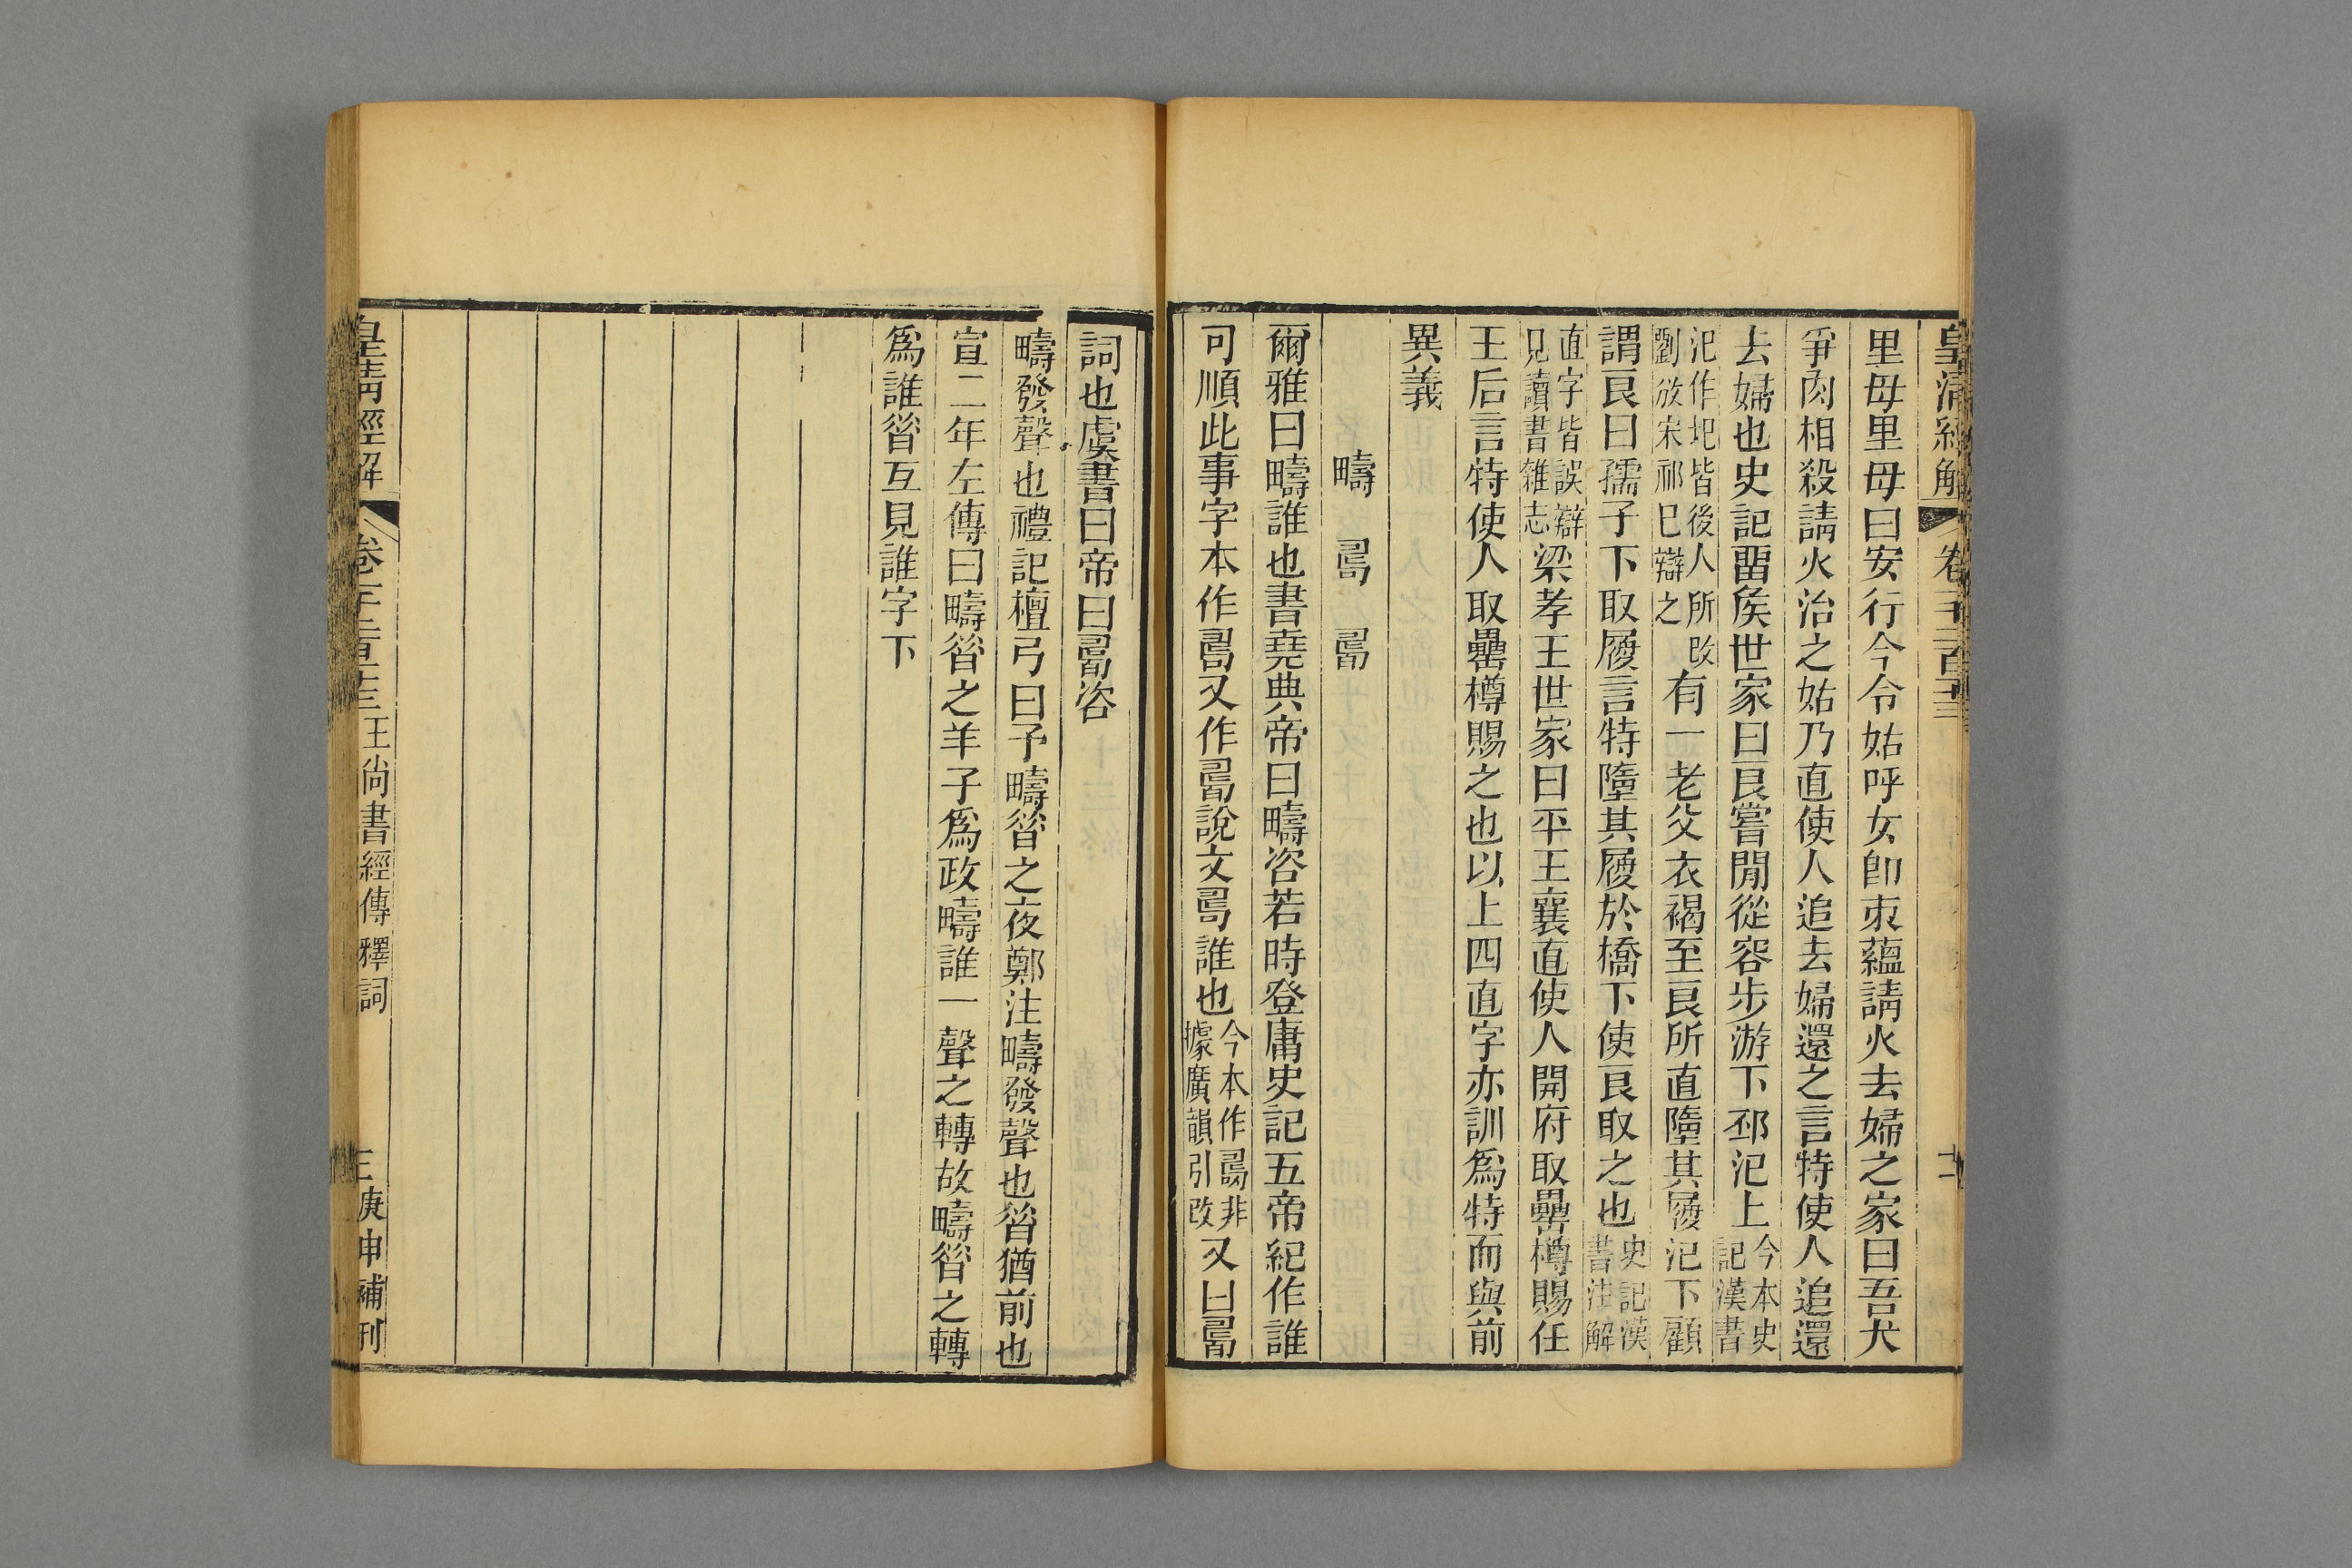 皇清經解 卷
里母里母曰安行今令姑呼女卽束蘊請火去婦之家曰吾犬
爭肉相殺請火治之姑乃直使人追去婦還之言特使人追還
去婦也史記畱矦世家曰良嘗閒從容步游下邳汜上今本史記漢書
汜作圯皆後人所改劉攽宋祁已辯之有一老父衣褐至良所直墮其履汜下顧
謂良曰孺子下取履言特墮其履於橋下使良取之也史記漢書注解
直字皆誤辯見讀書雜志梁孝王世家曰平王襄直使人開府取罍樽賜任
王后言特使人取罍樽賜之也以上四直字亦訓爲特而與前
異義
疇 𠷎 𤾊
爾雅曰疇誰也書堯典帝曰疇咨若時登庸史記五帝紀作誰
可順此事字本作𠷎又作𤾊說文𠷎誰也今本作𤾊非據廣韻引改又曰𤾊
詞也虞書曰帝曰𤾊咨
疇發聲也禮記檀弓曰予疇昝之夜鄭注疇發聲也昝猶前也
宣二年左傳曰疇昝之羊子爲政疇誰一聲之轉故疇昝之轉
爲誰昝互見誰字下
皇清經解 卷一千二百十三 王尚書經傳釋詞 庚申補刊